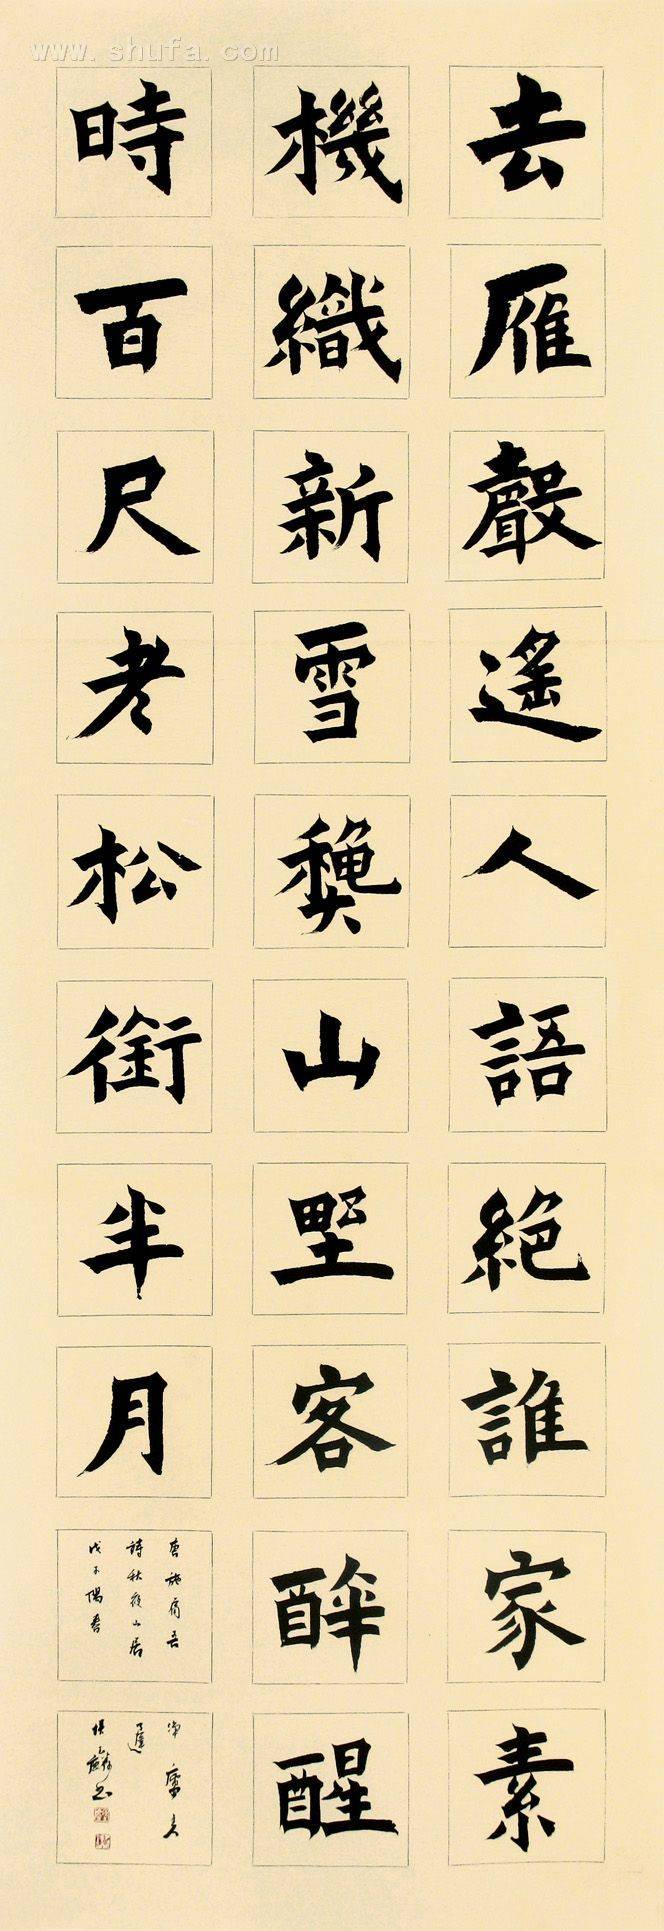 去雁聲遙人語絕誰家素
機織新雪龝山野客醉醒
時百尺老松銜半月
唐施肩吾
詩秋夜山居
戊子陽春
www.shufa.com